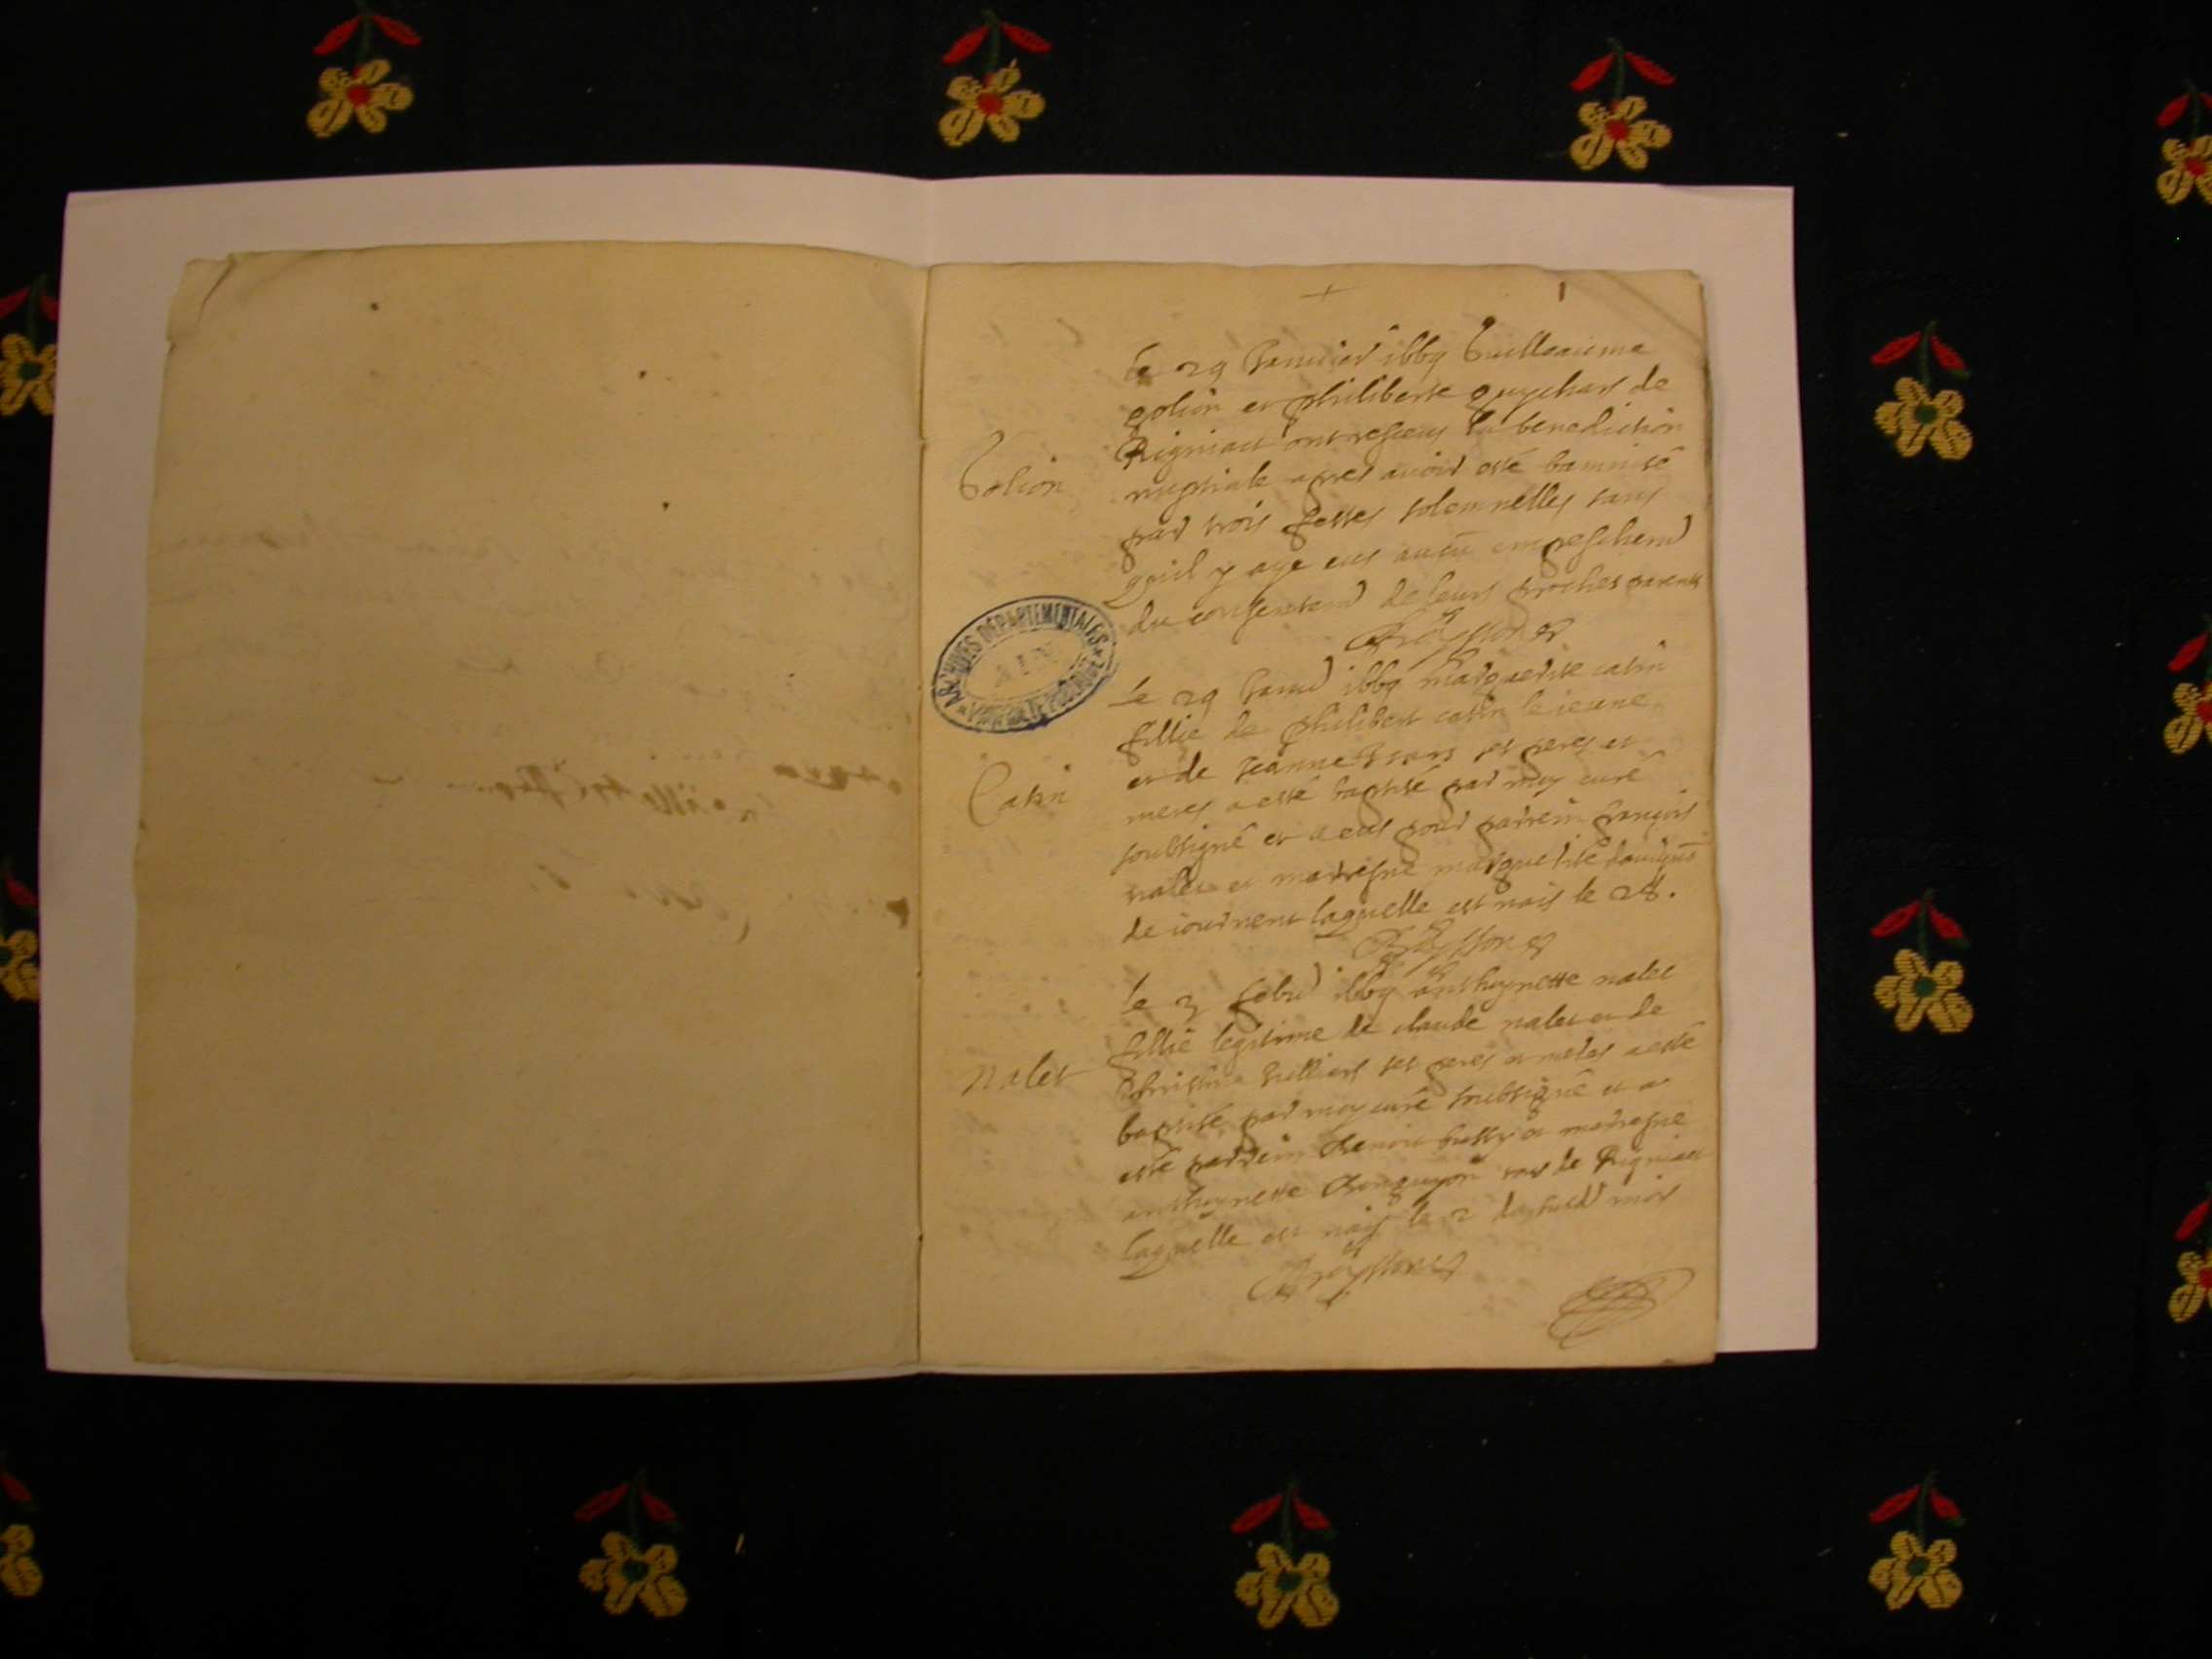 1
le 29 Januier 1669 Guilleaume
golion et philiberte guychard de
Rigniact ont reseus la benediction
nuptiale apres auoir esté bannisé
par trois festes solemnelles sans
quil y aye eus aucū empeschem
du consentem de leurs proches parents
Golion
ARCHIVES DEPARTEMENTALES
AIN
le 29 Janu 1669 marguerite catin
fillie de philibert catin le ieune
et de jeanne ses peres et
meres a esté baptisé par moy curé
soubsigné et a eus pour parrein françois
nalet et marresne marguerite
de iournent laquelle est nais le 28.
Catin
le 3 febu 1669 anthoynette nalet
fillie legitime de claude nalet et de
christine ses peres et meres a esté
baptisé par moy curé soubsigné et a
esté parrein benoit et marresne
anthoynette de Rigniact
laquelle est nais le 2 mois
nalet